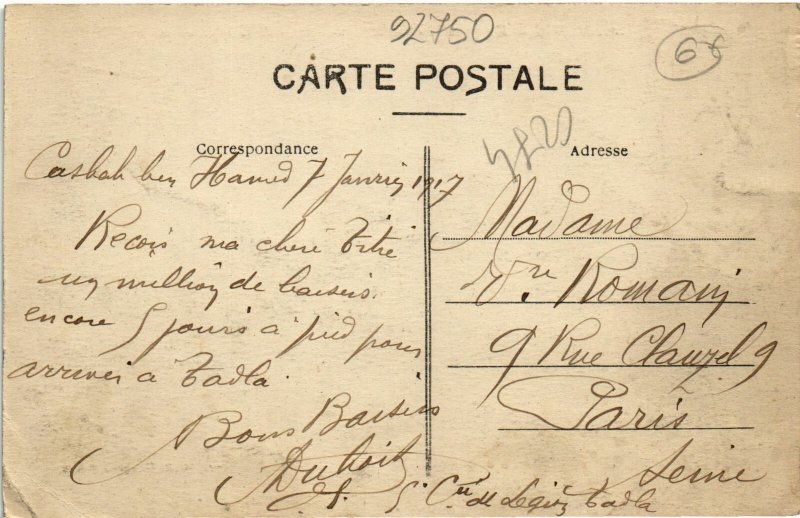 92750
6€
CARTE POSTALE
4820
Correspondance
Adresse
Casbah ben Hamed 7 Janvier 1917
Reçois ma chère Titi
un million de baisers.
encore 5 jours à pied pour
arriver à Tadla.
Bons Baisers
5e Cie de Légion Tadla
Madame
Vve Romain
9 Rue Clauzel 9
Paris
Seine